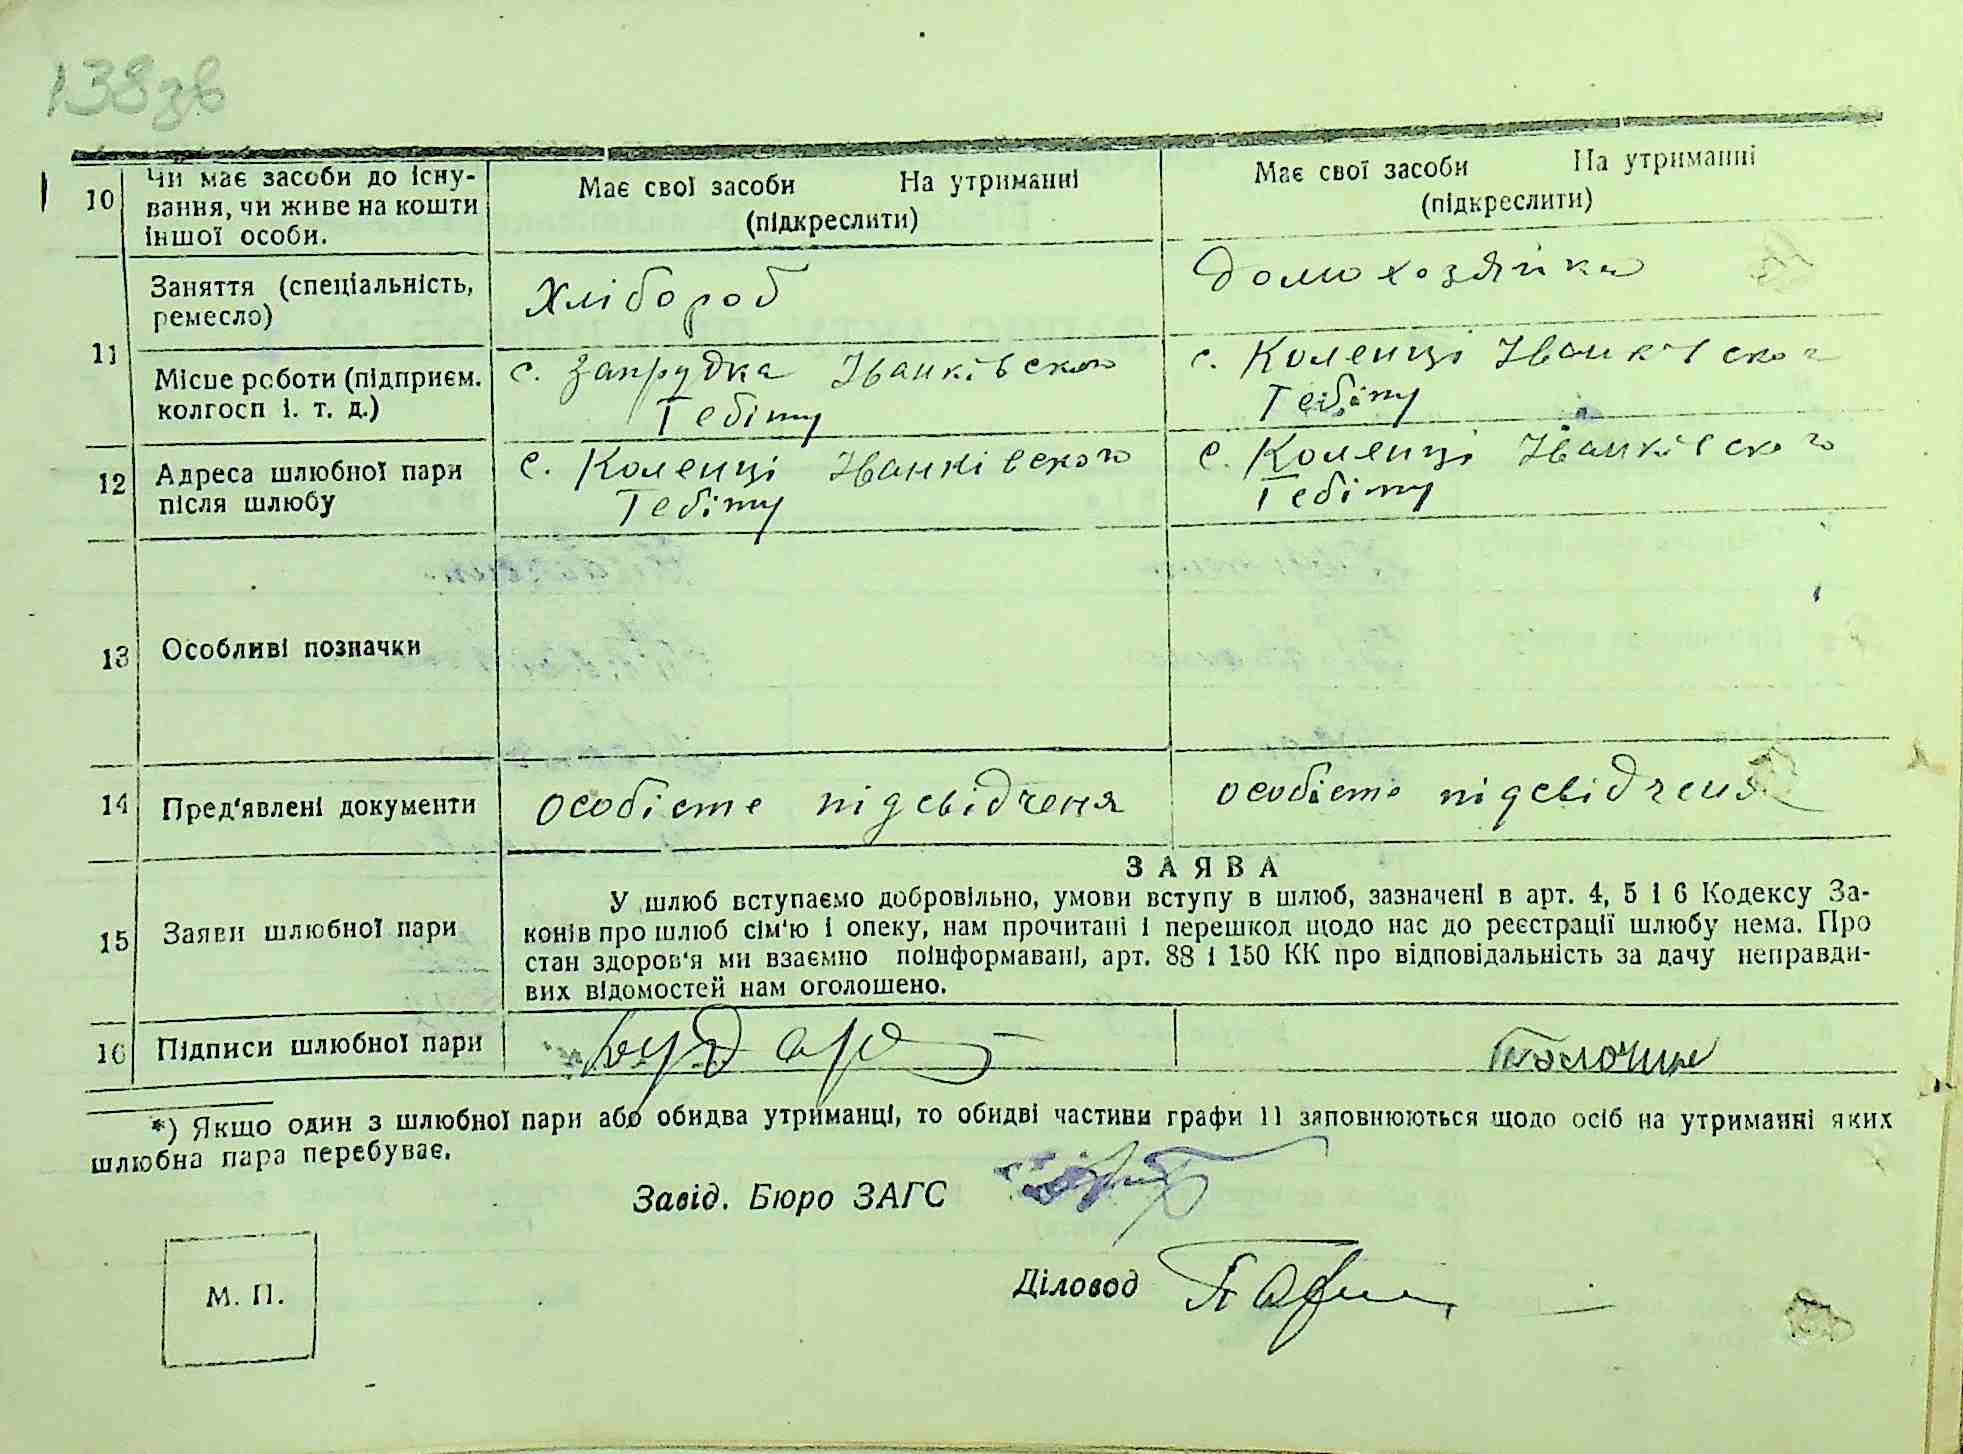 138зв
10 Чи має засоби до існу-
вання, чи живе на кошти
іншої особи.
Має свої засоби На утриманні
(підкреслити)
Має свої засоби На утриманні
(підкреслити)
11 Заняття (спеціальність,
ремесло)
Хлібороб
домохозяйка
Місце роботи (підприєм.
колгосп і. т. д.)
с. Запрудка Іванківского
Тебіту
с. Коленці Іванківского
Тебіту
12 Адреса шлюбної пари
після шлюбу
с. Коленці Іванківского
Тебіту
с. Коленці Іванківского
Тебіту
13 Особливі позначки
14 Пред'явлені документи
особісте підсвідченя
особісте підсвідченя
15 Заяви шлюбної пари
ЗАЯВА
У шлюб вступаємо добровільно, умови вступу в шлюб, зазначені в арт. 4, 5 і 6 Кодексу За-
конів про шлюб сім'ю і опеку, нам прочитані і перешкод щодо нас до реєстрації шлюбу нема. Про
стан здоров'я ми взаємно поінформавані, арт. 88 і 150 КК про відповідальність за дачу неправди-
вих відомостей нам оголошено.
16 Підписи шлюбної пари
*) Якщо один з шлюбної пари або обидва утриманці, то обидві частини графи 11 заповнюються щодо осіб на утриманні яких
шлюбна пара перебуває.
Завід. Бюро ЗАГС
Діловод
М. П.